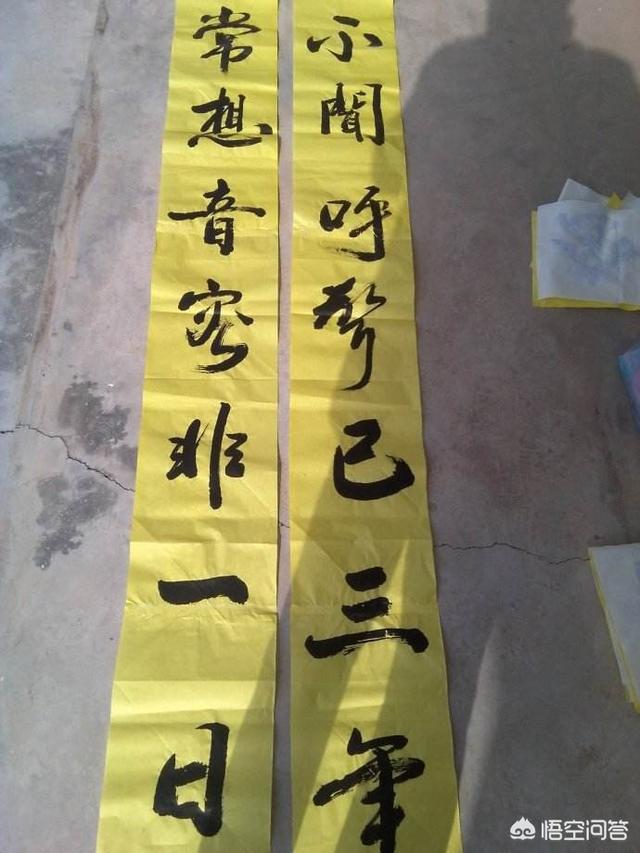 不聞呼聲已三年
常想音容非一日
悟空问答